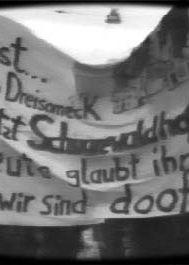 st...
Dreisameck
tzt Schwarzwaldho
eute glaubt ihr
wir sind doof